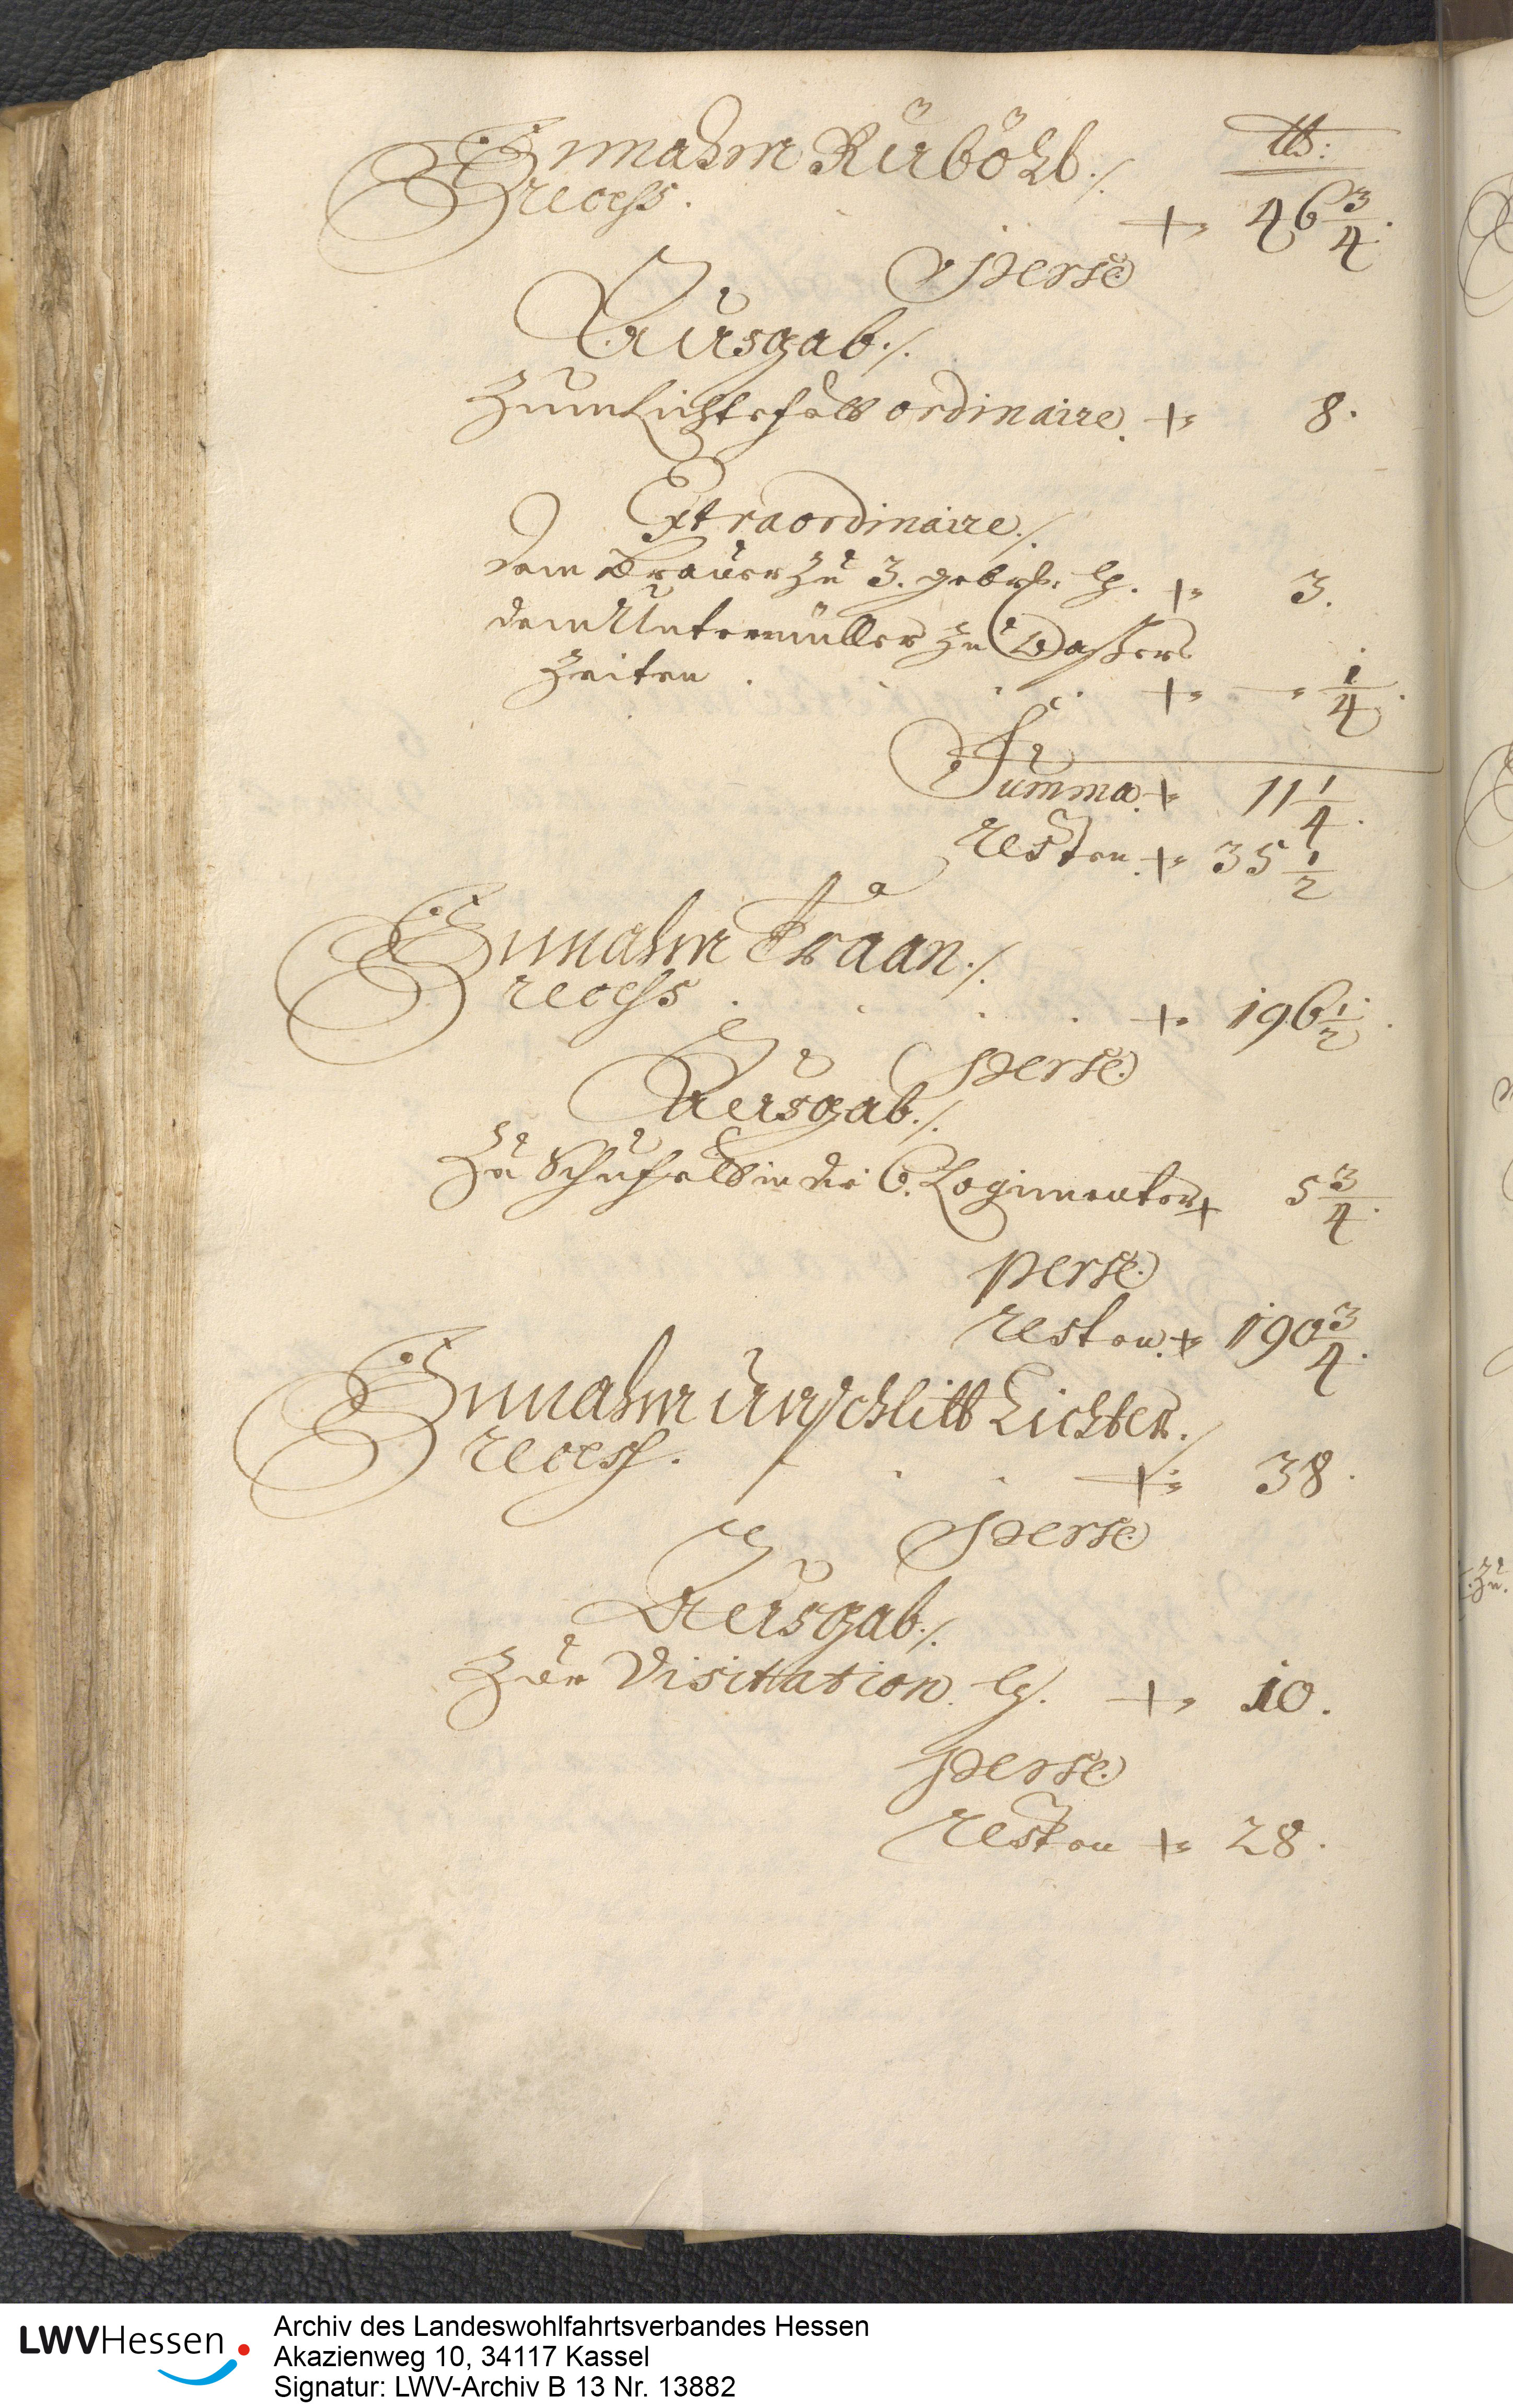 Einnahm Rüböhls ./. lb:
recess. + 46 3/4.
perse
Ausgab ./.
Zum Lichtefass ordinaire. + 8.
Extraordinaire ./.
dem Brauer zu 3. + 3.
dem Untermüller zu Wassers
Zeiten . + 1/4.
Summa. + 11 1/4.
resten. + 35 1/2
Einnahm Traan ./.
recess . + 196 1/2.
perse
Ausgab ./.
Zu in die 6. Logimenter + 5 3/4.
perse
resten. + 190 3/4.
Einnahm Unschlitt Lichter ./.
recess. + 38.
perse
Ausgab ./.
Zur Visitation. + 10.
perse
resten + 28.
Zu.
LWVHessen
Archiv des Landeswohlfahrtsverbandes Hessen
Akazienweg 10, 34117 Kassel
Signatur: LWV-Archiv B 13 Nr. 13882